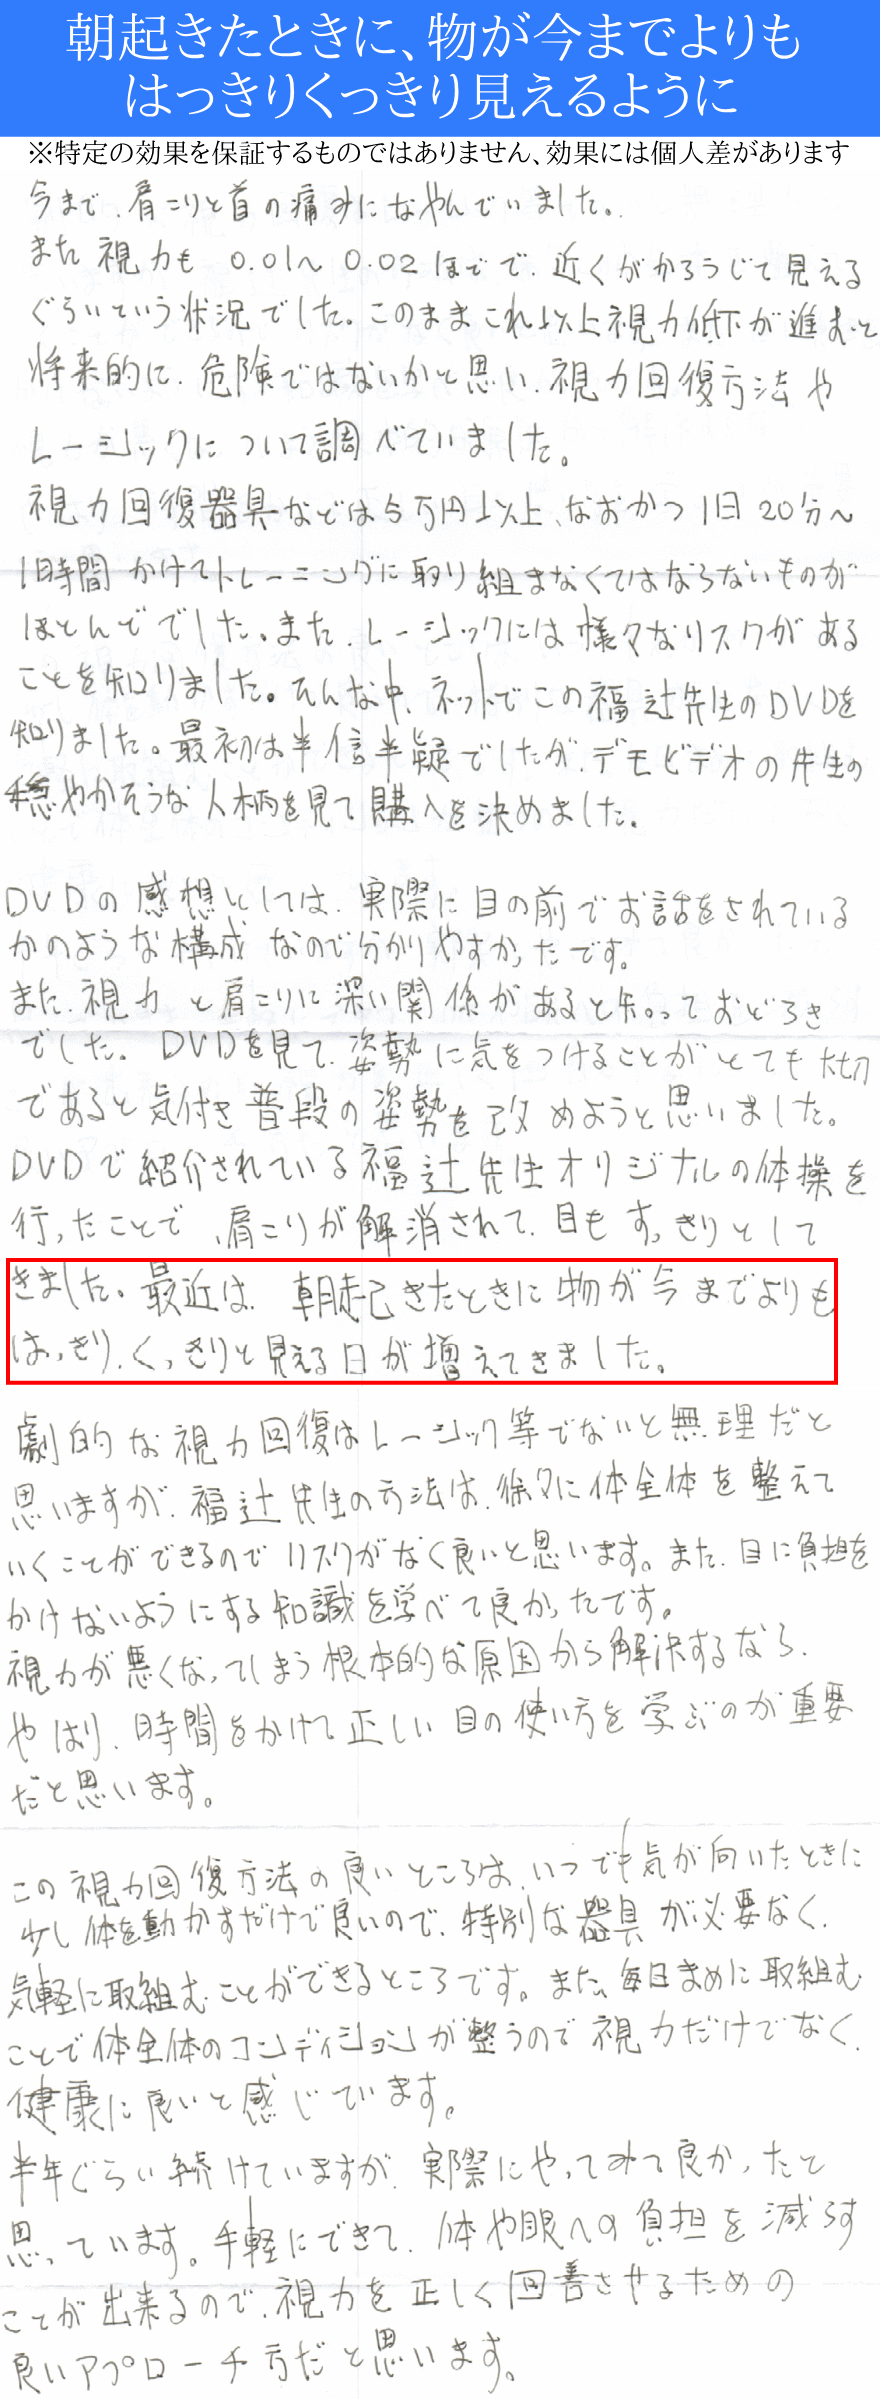 朝起きたときに、物が今までよりも
はっきりくっきり見えるように
※特定の効果を保証するものではありません、効果には個人差があります
今まで、肩こりと首の痛みになやんでいました。
また視力も 0.01〜0.02ほどで、近くがかろうじて見える
ぐらいという状況でした。このままこれ以上視力低下が進むと
将来的に、危険ではないかと思い、視力回復方法や
レーシックについて調べていました。
視力回復器具などは5万円以上、なおかつ1日20分〜
1時間かけてトレーニングに取り組まなくてはならないものが
ほとんどでした。また、レーシックには様々なリスクがある
ことを知りました。そんな中、ネットでこの福辻先生のDVDを
知りました。最初は半信半疑でしたが、デモビデオの先生の
穏やかそうな人柄を見て購入を決めました。
DVDの感想としては、実際に目の前でお話をされている
かのような構成なので分かりやすかったです。
また、視力と肩こりに深い関係があると知っておどろき
でした。DVDを見て、姿勢に気をつけることがとても大切
であると気付き普段の姿勢を改めようと思いました。
DVDで紹介されている福辻先生オリジナルの体操を
行ったことで、肩こりが解消されて、目もすっきりとして
きました。最近は、朝起きたときに物が今までよりも
はっきり、くっきりと見える日が増えてきました。
劇的な視力回復はレーシック等でないと無理だと
思いますが、福辻先生の方法は、徐々に体全体を整えて
いくことができるのでリスクがなく良いと思います。また、目に負担を
かけないようにする知識を学べて良かったです。
視力が悪くなってしまう根本的な原因から解決するなら、
やはり、時間をかけて正しい目の使い方を学ぶのが重要
だと思います。
この視力回復方法の良いところは、いつでも気が向いたときに
少し体を動かすだけで良いので、特別な器具が必要なく、
気軽に取組むことができるところです。また、毎日まめに取組む
ことで体全体のコンディションが整うので視力だけでなく、
健康に良いと感じています。
半年ぐらい続けていますが、実際にやってみて良かったと
思っています。手軽にできて、体や眼への負担を減らす
ことが出来るので、視力を正しく回善させるための
良いアプローチ方だと思います。